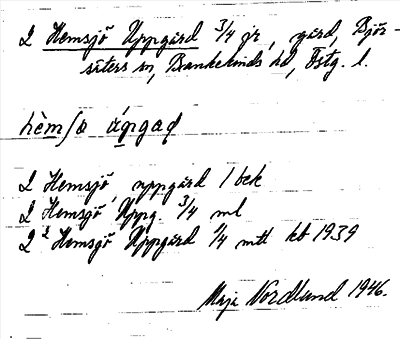 2 Hemsjö Uppgård 3/4 jr, gård, Björ-
säters sn, Bankekinds hd, Östg. l.
hèmʃø ápgaḍ
2 Hemsjö, uppgård 1 bek
2 Hemsjö Uppg. 3/4 ml
2 Hemsjö Uppgård 1/4 mtl kb 1939
Maja Nordlund 1946.